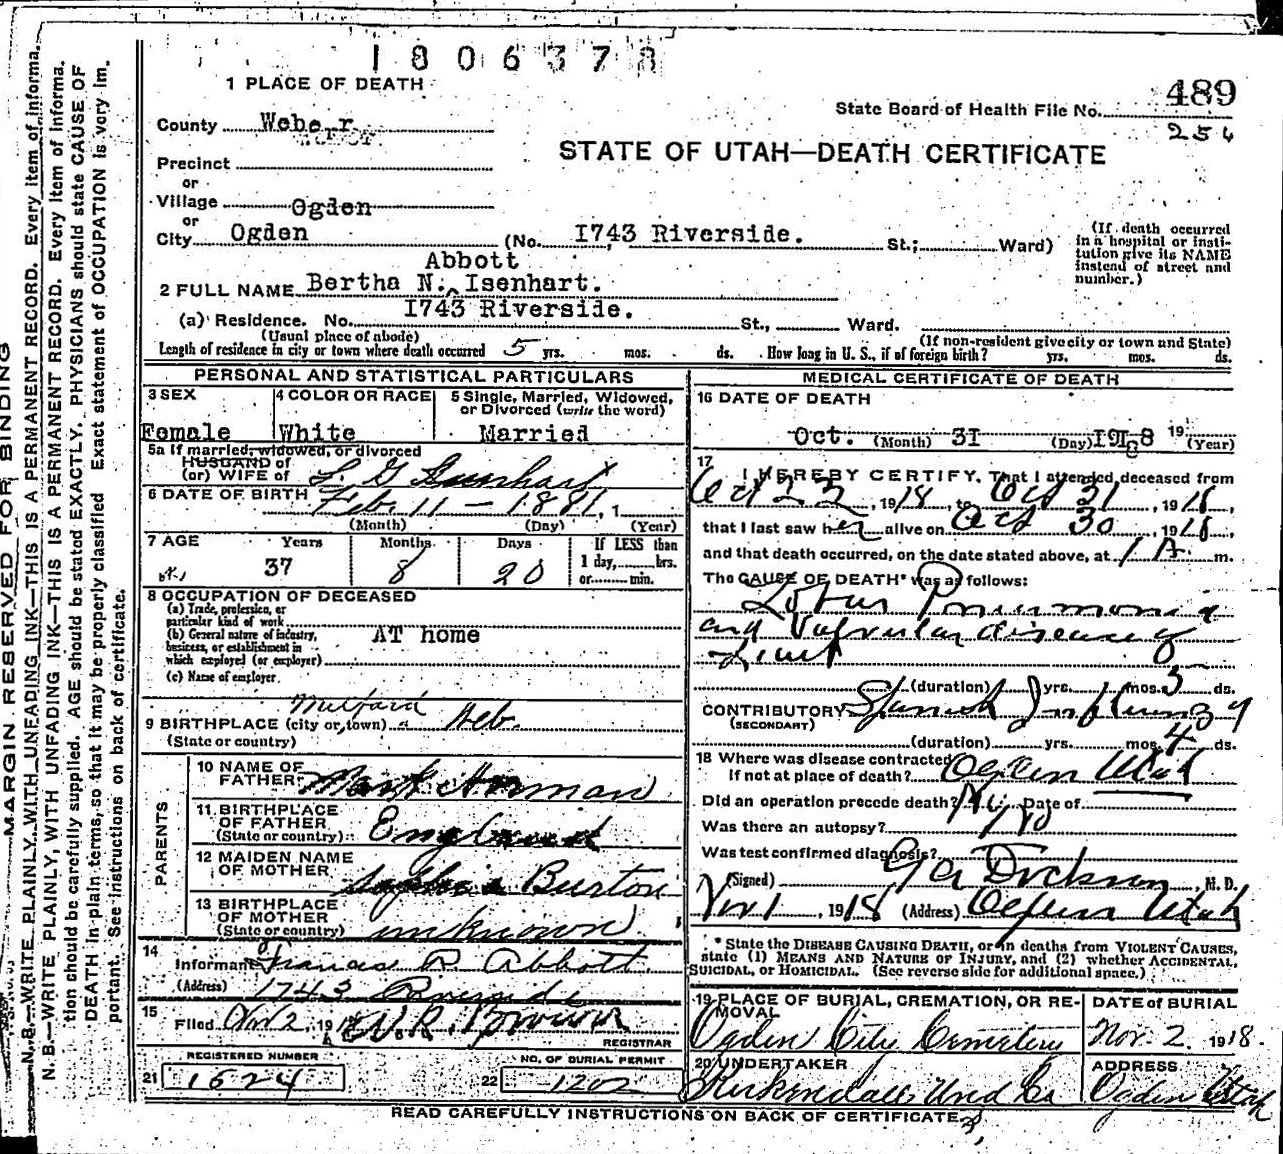 1806378
489
State Board of Health File No.
254
1 PLACE OF DEATH
County Weber
STATE OF UTAH—DEATH CERTIFICATE
Precinct
or
Village Ogden
or
City Ogden (No. I743 Riverside. St.; Ward)
(If death occurred in a hospital or insti-
tution give its NAME
instead of street and
number.)
Abbott
2 FULL NAME Bertha N. ^ Isenhart.
(a) Residence. No. I743 Riverside. St., Ward.
(Usual place of abode) (If non-resident give city or town and State)
Length of residence in city or town where death occurred 5 yrs. mos. ds. How long in U. S., if of foreign birth? yrs. mos. ds.
PERSONAL AND STATISTICAL PARTICULARS
3 SEX Female
4 COLOR OR RACE White
5 Single, Married, Widowed,
or Divorced (write the word)
Married
5a If married, widowed, or divorced
HUSBAND of
(or) WIFE of L. G. Isenhart
6 DATE OF BIRTH Feb. 11 — 1881, 1
(Month) (Day) (Year)
7 AGE Years 37 Months 8 Days 20
If LESS than
1 day, hrs.
or min.
8 OCCUPATION OF DECEASED
(a) Trade, profession, or
particular kind of work
(b) General nature of industry,
business, or establishment in
which employed (or employer)
AT home
(c) Name of employer
9 BIRTHPLACE (city or town) Milford Neb.
(State or country)
PARENTS
10 NAME OF
FATHER Mark Norman
11 BIRTHPLACE
OF FATHER
(State or country) England
12 MAIDEN NAME
OF MOTHER Sophia Burton
13 BIRTHPLACE
OF MOTHER
(State or country) unknown
14
Informant Francis R. Abbott
(Address) 1743 Riverside
15
Filed Nov 2, 1918 W.R. Brown
REGISTRAR
REGISTERED NUMBER
21 1624
NO. OF BURIAL PERMIT
22 1202
MEDICAL CERTIFICATE OF DEATH
16 DATE OF DEATH
Oct. (Month) 3I (Day) I9I8 19 (Year)
17 I HEREBY CERTIFY, That I attended deceased from
Oct 23, 1918, to Oct 31, 1918,
that I last saw her alive on Oct 30, 1918,
and that death occurred, on the date stated above, at 1 A. m.
The CAUSE OF DEATH* was as follows:
Lobar Pneumonia
and Valvular disease of
Heart
(duration) yrs. mos. 3 ds.
CONTRIBUTORY Spanish Influenza
(SECONDARY)
(duration) yrs. mos. 4 ds.
18 Where was disease contracted
if not at place of death? Ogden Utah
Did an operation precede death? No Date of
Was there an autopsy? No
Was test confirmed diagnosis?
(Signed) Dickson, M. D.
Nov 1, 1918 (Address) Ogden Utah
* State the DISEASE CAUSING DEATH, or in deaths from VIOLENT CAUSES,
state (1) MEANS AND NATURE OF INJURY, and (2) whether ACCIDENTAL,
SUICIDAL, OR HOMICIDAL. (See reverse side for additional space.)
19 PLACE OF BURIAL, CREMATION, OR RE-
MOVAL
Ogden City Cemetery
DATE of BURIAL
Nov. 2 1918.
20 UNDERTAKER
Kirkendall Und Co
ADDRESS
Ogden Utah
READ CAREFULLY INSTRUCTIONS ON BACK OF CERTIFICATE
MARGIN RESERVED FOR BINDING
N. B.—WRITE PLAINLY, WITH UNFADING INK—THIS IS A PERMANENT RECORD. Every item of informa-
N. B.—WRITE PLAINLY, WITH UNFADING INK—THIS IS A PERMANENT RECORD. Every item of informa-
tion should be carefully supplied. AGE should be stated EXACTLY. PHYSICIANS should state CAUSE OF
DEATH in plain terms, so that it may be properly classified. Exact statement of OCCUPATION is very im-
portant. See instructions on back of certificate.